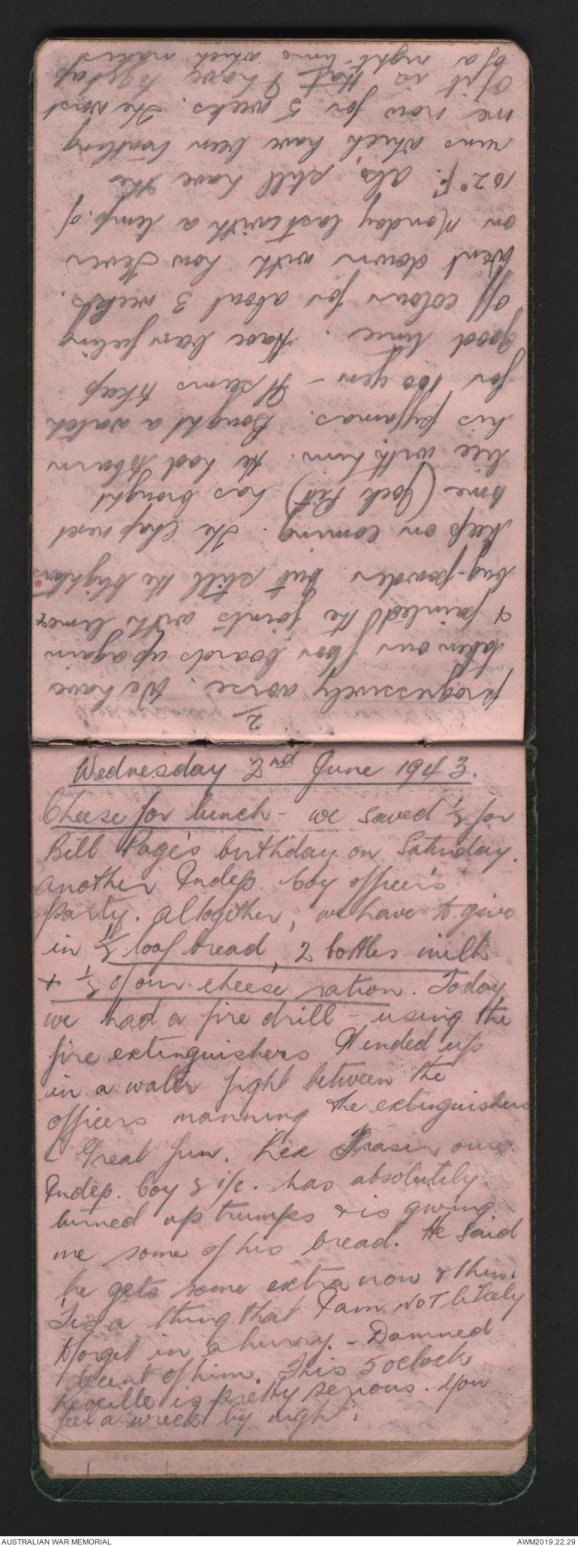 2/
progressively worse. We have
taken our floor boards up again
& painted the joints with lime &
bug-powder but still the blighters
keep on coming. The chap next
time (Jock Britz) has brought
lice with him. He had to burn
his pyjamas. Bought a watch
for 100 yen - It seems to keep
good time. Have been feeling
off colour for about 3 weeks.
Went down with how fever
on Monday last with a temp. of
102°F. Also still have the
runs which have been troubling
me now for 5 weeks. The worst
of it is that I have to get up
of a night time which makes
Wednesday 2nd June 1943.
Cheese for lunch - we saved ½ for
Bill Page's birthday on Saturday.
Another Indep. Coy officer's
party. Altogether, we have to give
in ½ loaf bread, 2 bottles milk
+ ½ of our cheese ration. Today
we had a fire drill - using the
fire extinguishers It ended up
in a water fight between the
officers manning the extinguishers
Great fun. Lex Fraser our
Indep. Coy 2 i/c. has absolutely
turned up trumps & is giving
me some of his bread. He said
he gets some extra now & then.
'Tis a thing that I am NOT likely
to forget in a hurry. - Damned
decent of him. This 5 oclock
reveille is pretty serious. You
feel a wreck by night.
AUSTRALIAN WAR MEMORIAL
AWM2019.22.29